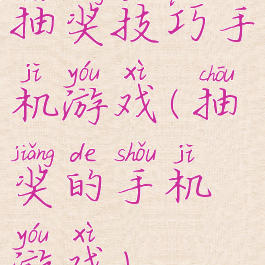 抽奖技巧手
jī yóu xì chōu
机游戏(抽
jiǎng de shǒu jī
奖的手机
yóu xì
游戏)